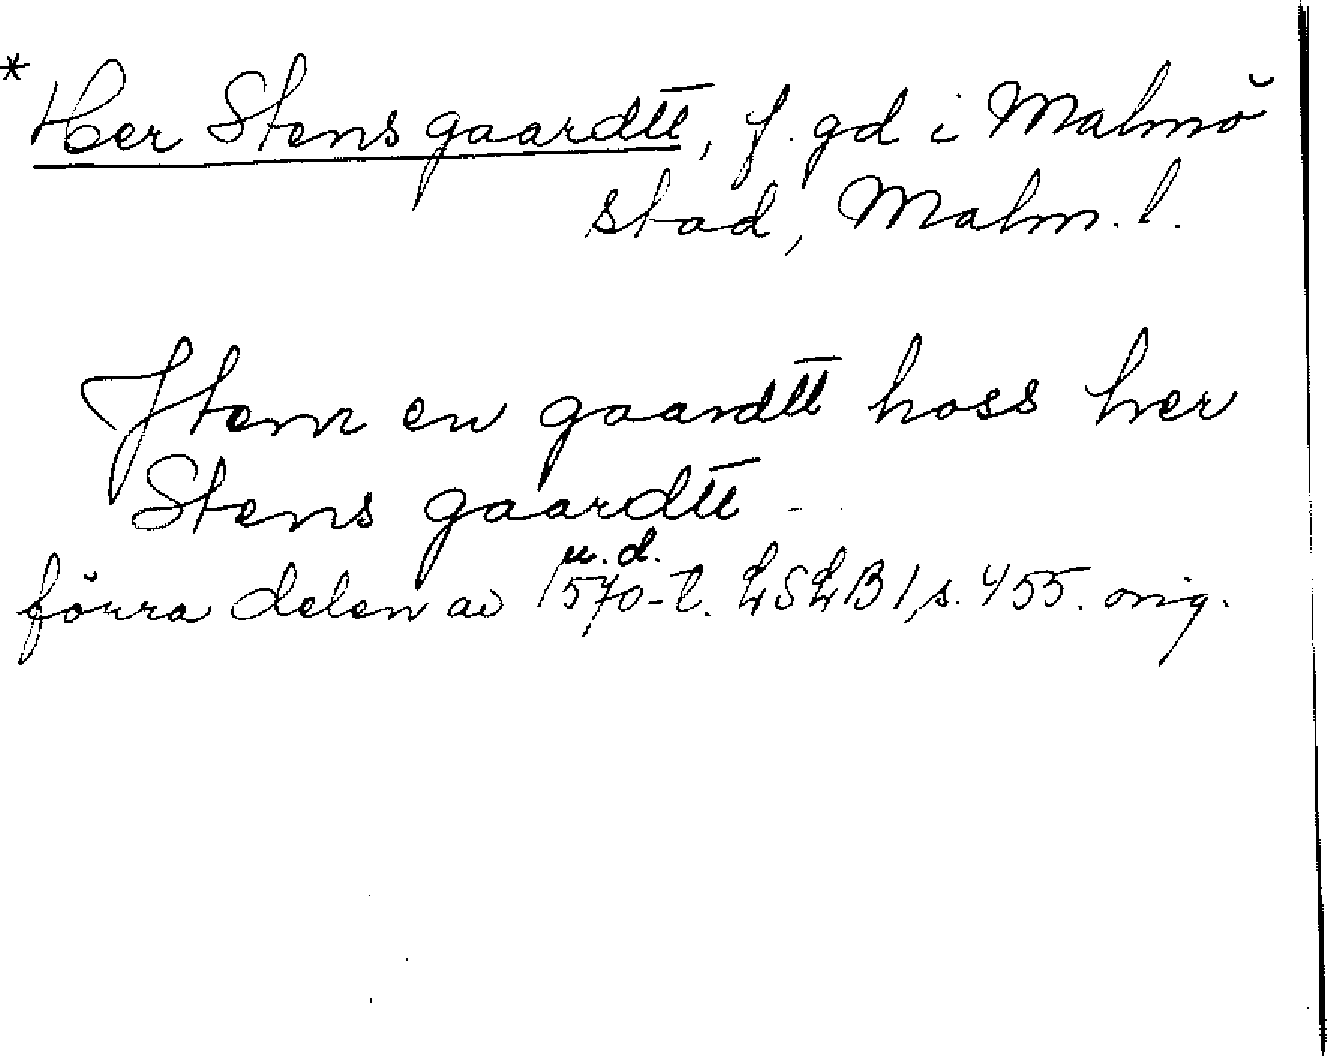 * Her Stens gaardtt, f. gd i Malmö
stad, Malm. l.
Jtem en gaardtt hoss her
Stens gaardtt - .
u. d.
förra delen av 1570-t. LSLB 1, s. 455. orig.